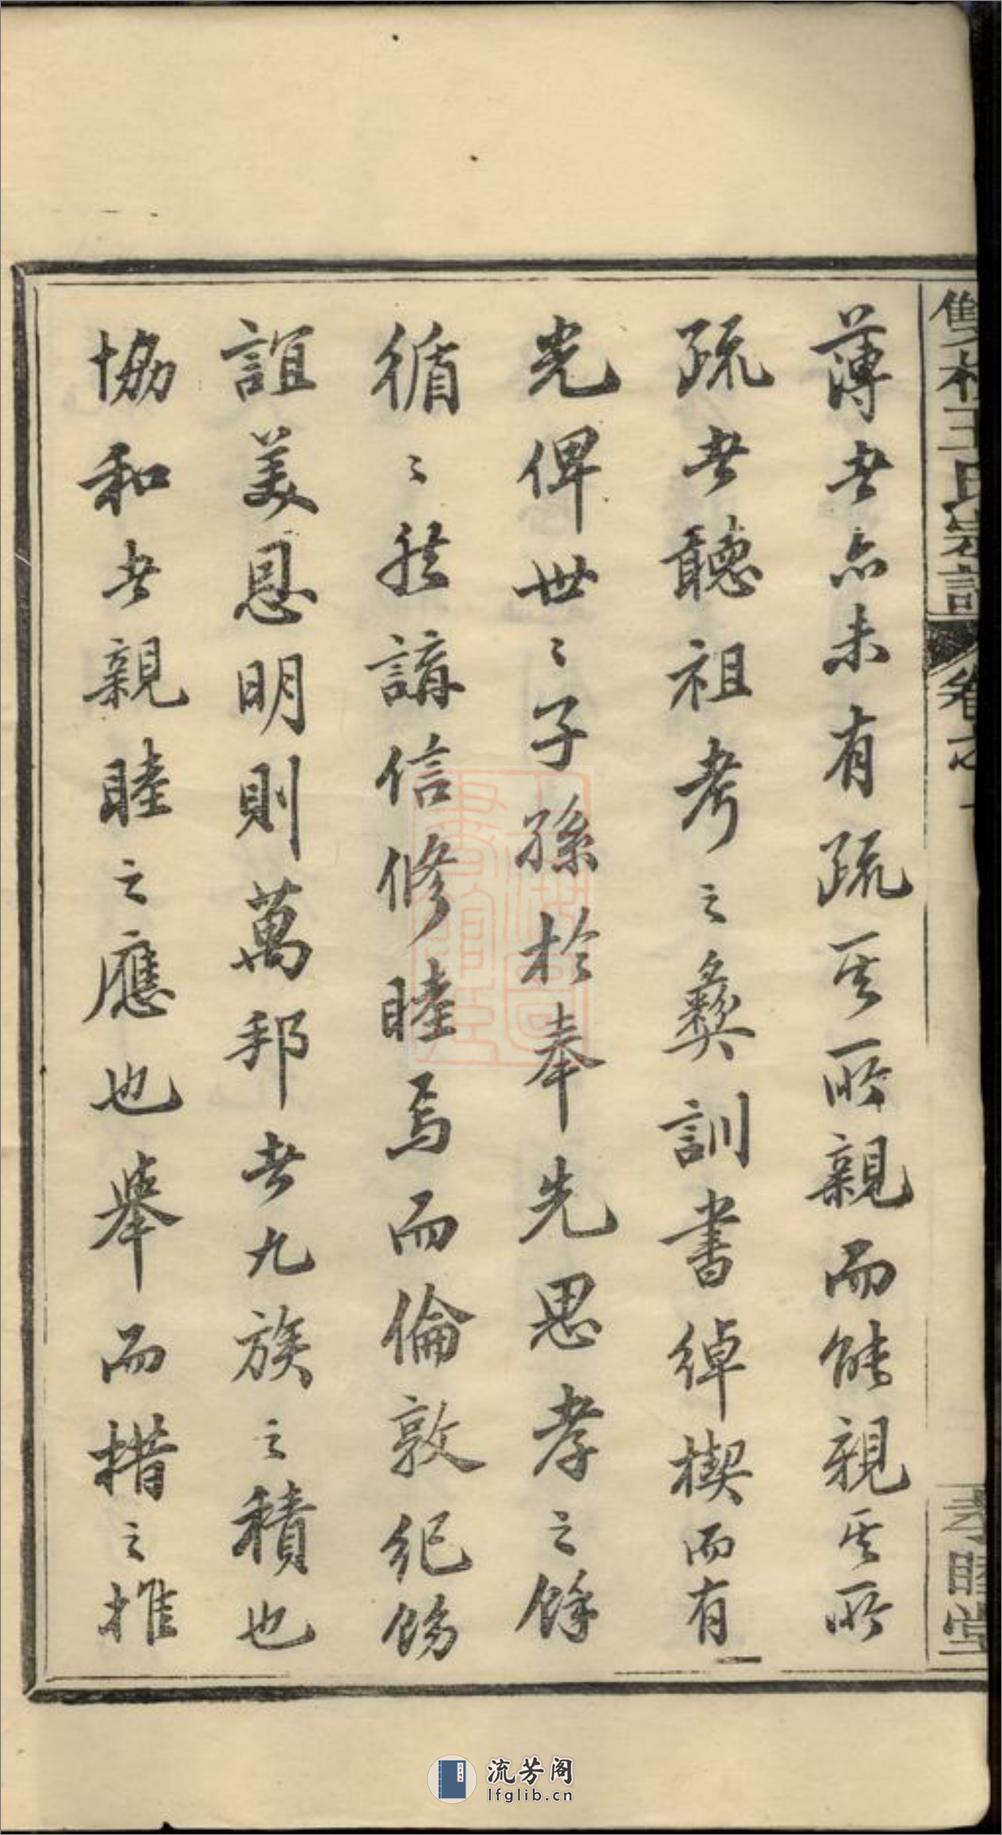 雙杉王氏宗譜 卷之一 孝睦堂
薄者亦未有疏其所親而能親其所
疏者聽祖考之彝訓書綽楔而有
光俾世〻子孫於奉先思孝之餘
循〻然講信修睦焉而倫敦紀飭
誼美恩明則萬邦者九族之積也
協和者親睦之應也舉而措之推
流芳阁
lfglib.cn